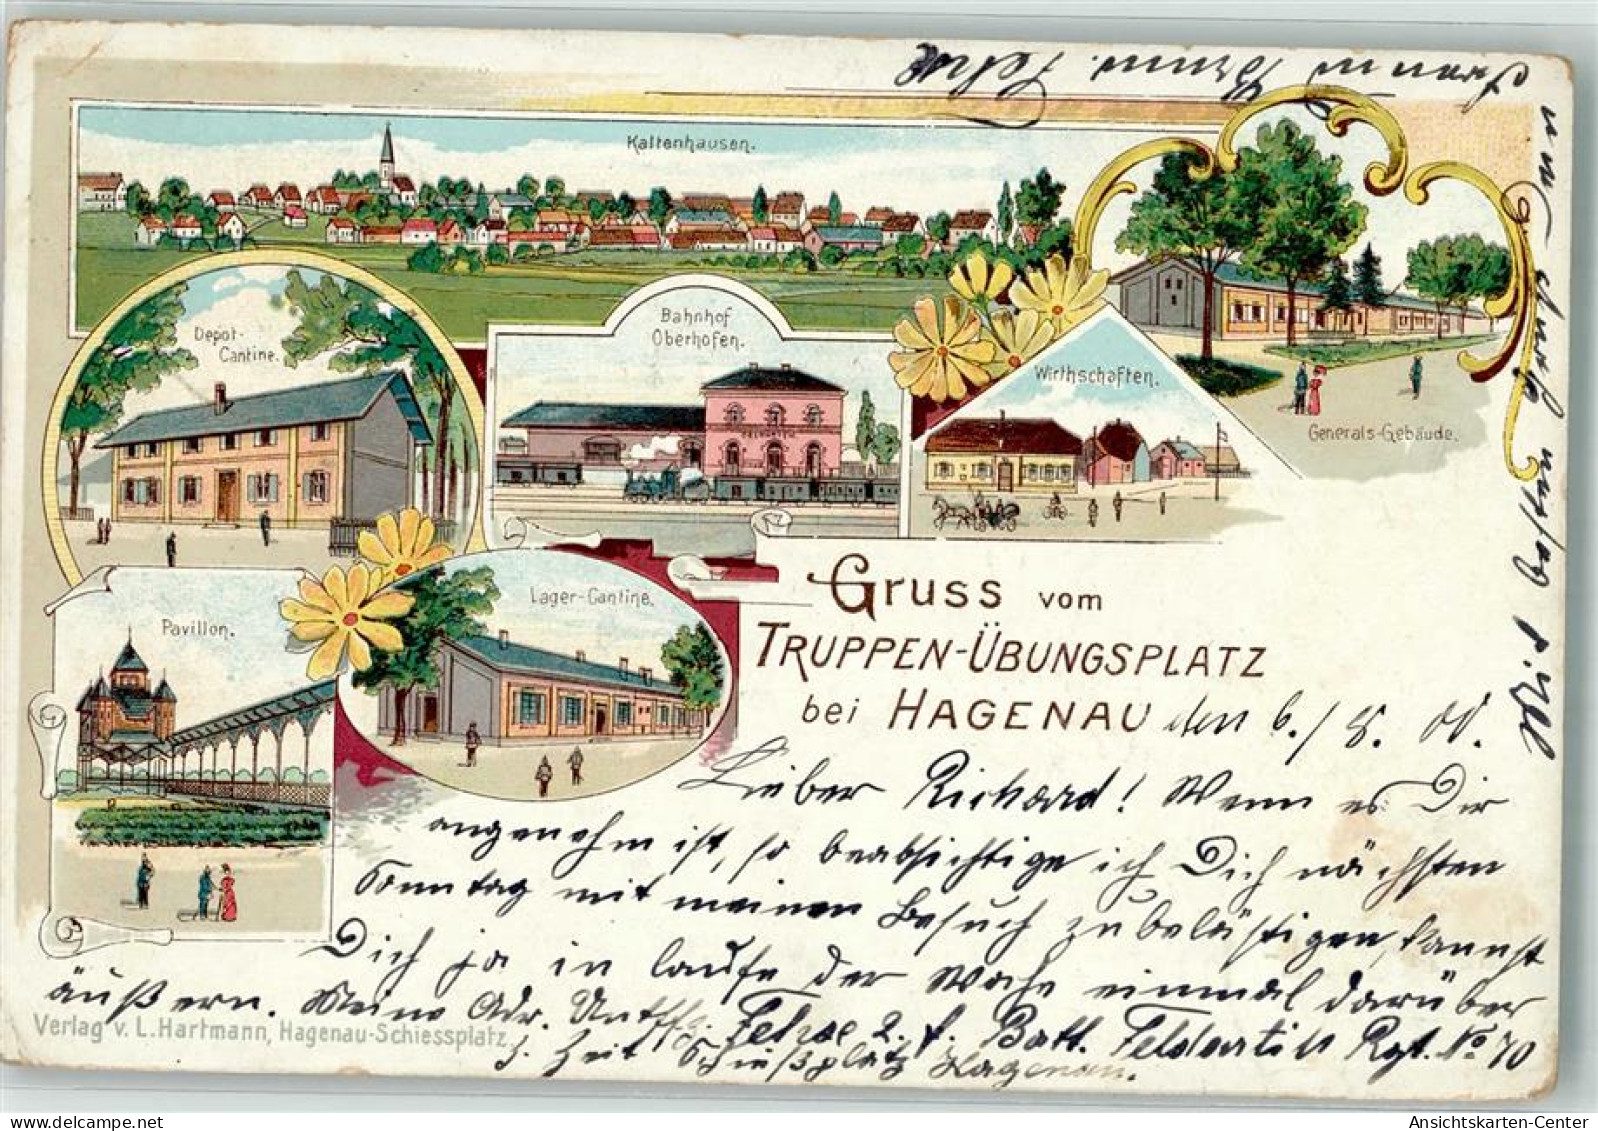 Kaltenhausen.
Depot-
Cantine.
Bahnhof
Oberhofen.
Wirthschaften.
Generals-Gebäude.
Pavillon.
Lager-Cantine.
Gruss vom
TRUPPEN-ÜBUNGSPLATZ
bei HAGENAU den 6./8. 00.
Lieber Richard! Wenn es Dir
angenehm ist, so beabsichtige ich Dich nächsten
Sonntag mit meinen Besuch zu belästigen, kannst
Dich ja in laufe der Woche einmal darüber
äußern. Meine Adr. Untffz. Fehse 2. f. Batt. Feldartill Rgt. No 70
z. Zeit Schießplatz Hagenau.
Verlag v. L. Hartmann, Hagenau-Schiessplatz.
Fehse
AnsichtsKarten-Center